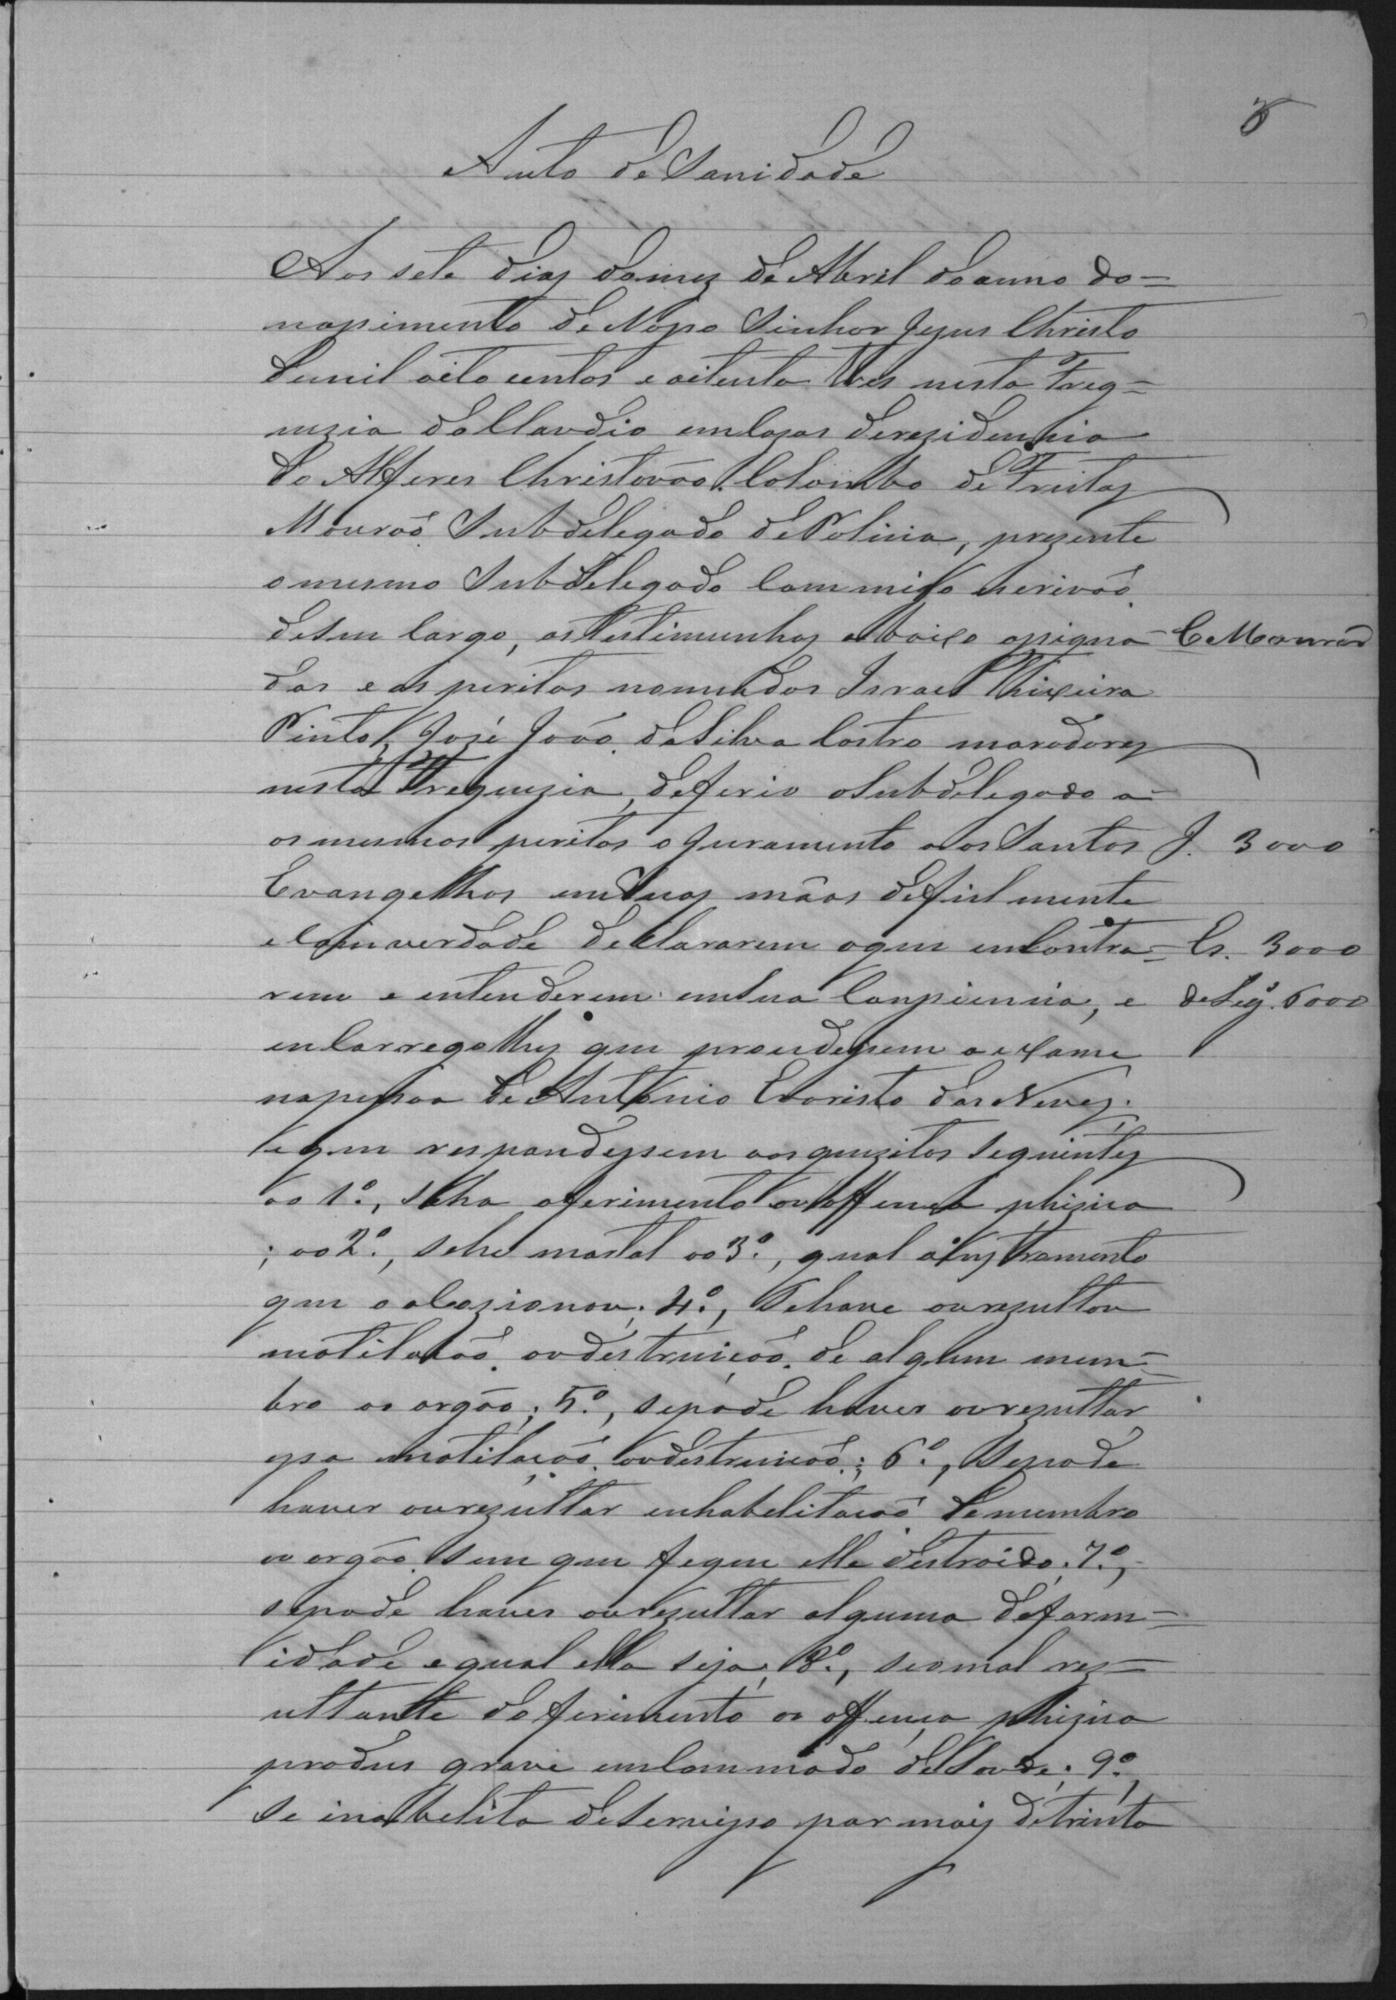 8
Auto de Sanidade
Aos sete dias domez de Abril doanno do=
nassimento de Nosso Sinhor Jezus Christo
demil oito centos e oitenta tres nesta Freg=
uezia do Claudio emCazas derezidencia
do Alferes Christovão Colombo de Freitas
Mourão Subdelegado de Policia, prezente
o mesmo Subdelegado Commigo escrivão
deseu Cargo, as testimunhas abaixo assigna-
das e os peritos nomeados Israel Thixeira
Pinto, José João da Silva Castro moradores
nesta Freguezia, deferio o Subdelegado a-
os mesmos peritos o juramento aos Santos
Evangelhos emSuas mãos defielmente
e Com verdade declararem oque enContra=
rem e entenderem emsua Conpsiencia, e
enCarregou lhes que prosedessem o exame
napessoa de Antonio Evaristo das Neves.
e que respondessem aos quezitos seguintes
ao 1º., Seha oferimento ou offença phizica
; ao 2º., sehe mortal ao 3º., qual o instromento
que o ocazionou; 4º., Sehouve ouresultou
motilacão oudestruicão de algum mem=
bro ou orgão; 5º., sepode haver ourezultar
essa motilação oudestruicão; 6º., Sepode
haver ourezultar enhabelitacão demembro
ou orgão sem que fique elle destroido; 7º.,
sepode haver ourezultar alguma deform=
idade equal ella seja; 8º., seomal rez=
ultante do ferimento ou offença phizica
produs grave emCommodo deSaude; 9º.,
Se inabelita deServisso por mais detrinta
C. Mourão
J. 3000
Es. 3000
de Leg. 6000